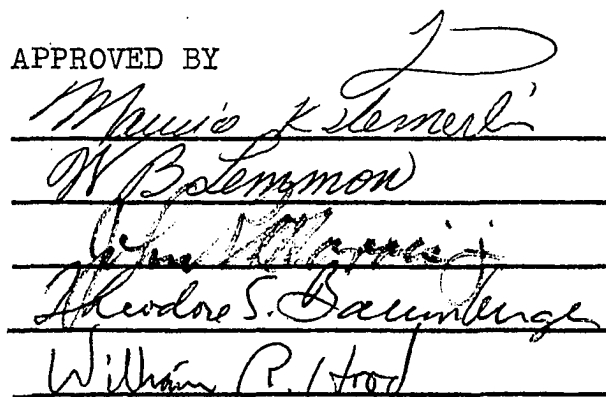 APPROVED BY
Maurice K Temerlin
W B Lemmon
Theodore S. Baumberger
William R. Hood